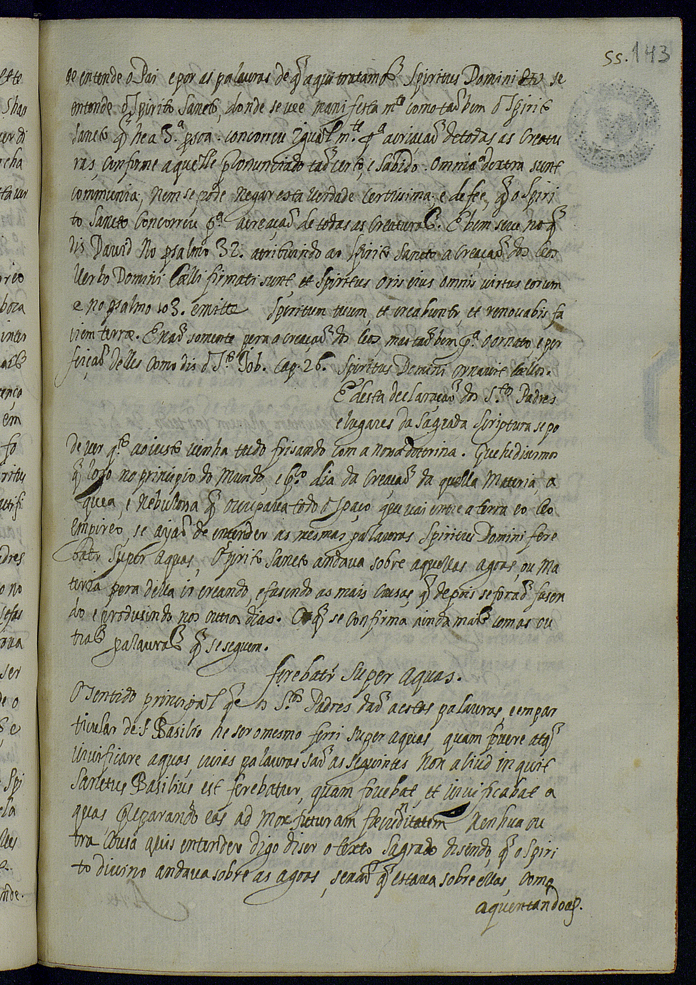 55. 143
se entende o Pai e por as palauras de q̃ aqui tratamos Spiritus Domini etc. se
entende o Spirito Sancto, donde se uee manifesta m.te como tãbem o Spirito
Sancto q̃ he a 3.ª pesoa concorreu igual m.te p.ª a criacaõ de todas as Creatu
ras conforme aquelle pronunciado taõ certo, e sabido. Omnia ad extra sunt
communia, nem se pode negar esta uerdade certissima, e de fee, q̃ o Spiri
to Sancto concorreu p.ª a creacaõ de todas as Creaturas. E bem se ue no q̃
dis Dauid no psalmo 32. atribuindo ao Spirito Sancto a Creacaõ dos Ceos
Uerbo Domini Cœli firmati sunt et Spiritus oris eius omnis uirtus eorum
e no psalmo 103. emitte Spiritum tuum, et creabuntr et renouabis fa
ciem terræ. E naõ somente pera a creacaõ dos Ceos, mas tãbem p.ª o ornato e per
feiçaõ delles como dis o S.to Job. Cap. 26. Spiritus Domini ornauit Cœlos.
E desta declaracaõ dos S.tos Padres
e lugares da Sagrada Scriptura se po
de uer q.to ao iusto uenha tudo frisando com a noua doctrina. Que hidissimo
q̃ logo no principio do Mundo, e 1.o dia da Creacaõ da quella Materia, a
quea e Nebulosa q̃ ocupaua todo o spaço que uai entre a terra e o Ceo
Empireo, se ajaõ de entender as mesmas palauras Spiritus Domini fere
batr super aquas, o Spirito Sancto andaua sobre aquellas agoas, ou Ma
teria pera della ir creando, e fasendo as mais cousas, q̃ depois se foraõ fasen
do e produsindo nos outros dias. O q̃ se confirma ainda mais com as ou
tras palauras q̃ se seguem.
ferebatr super aquas.
O Sentido principal q̃ os S.tos Padres daõ a estas palauras, e em par
ticular de S. Basilio he ser o mesmo ferri super aquas, quam fouere atq̃
uiuificare aquas, cuias palauras saõ as seguintes Non aliud inquit
Sanctus Basilius est ferebatur, quam fouebat et uiuificabat a
quas præparando eas ad mox futuram fœcunditatem Nenhua ou
tra cousa quis entender digo diser o texto Sagrado disendo q̃ o Spiri
to diuino andaua sobre as agoas, senaõ q̃ estaua sobre ellas, como
aquentandoas.